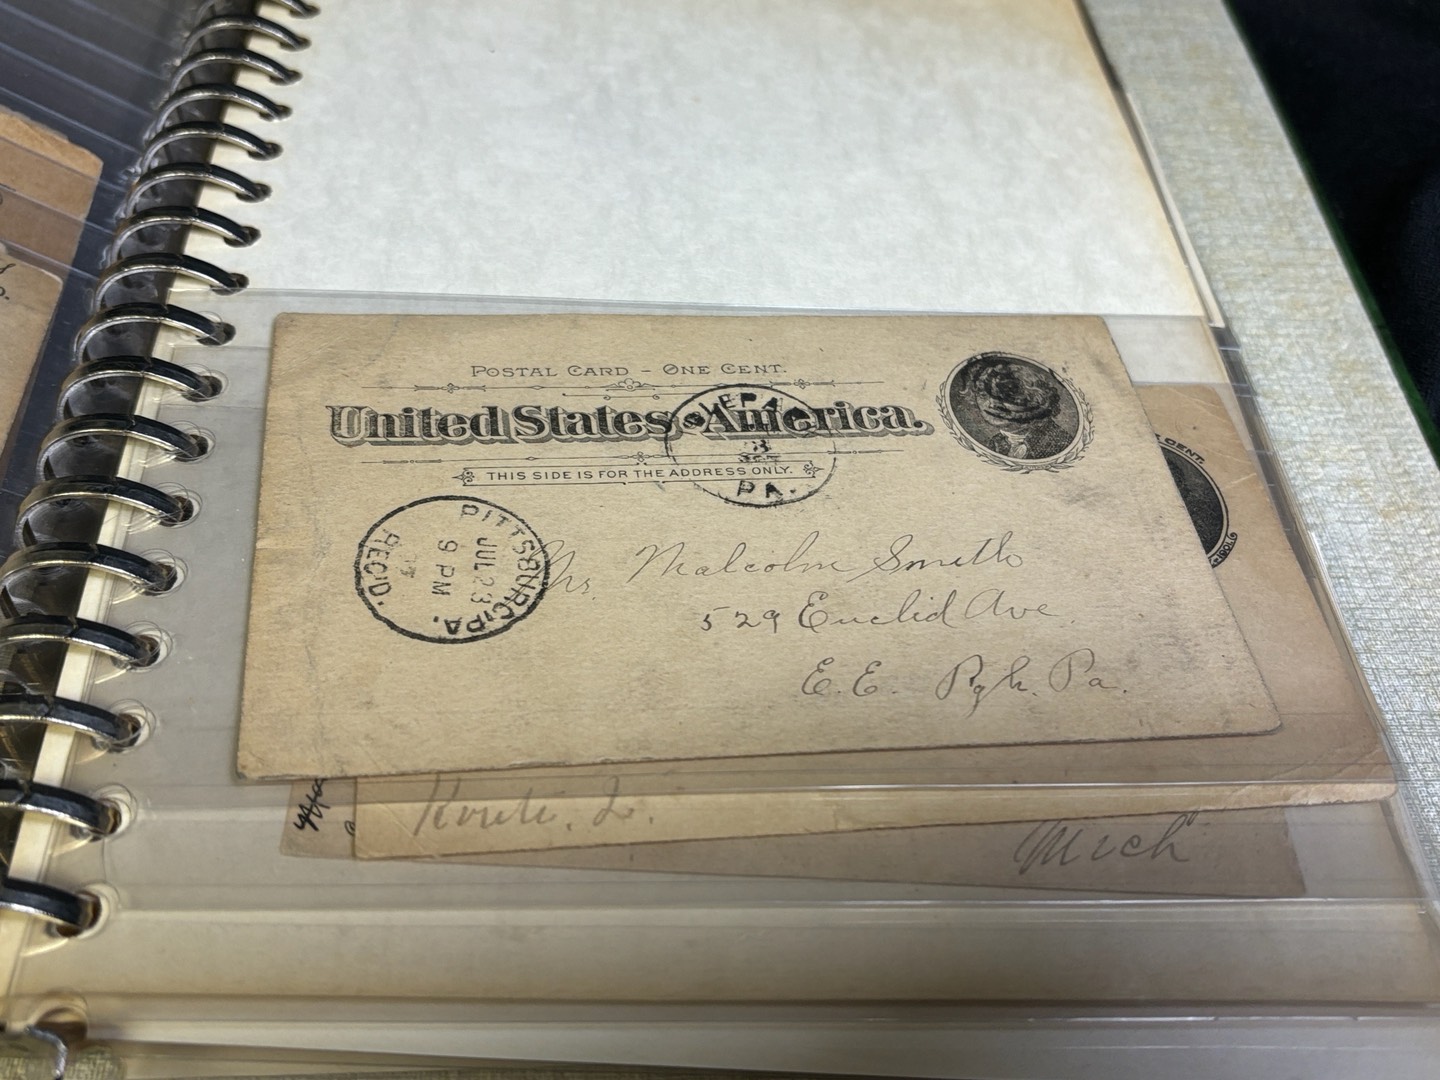 POSTAL CARD - ONE CENT.
United States of America.
THIS SIDE IS FOR THE ADDRESS ONLY.
PA.
PITTSBURG, PA.
JUL 23
9 PM
REC'D.
Mrs. Malcolm Smith
529 Euclid Ave.
E. E. Pgh. Pa.
CENT.
Route. 2.
Mich